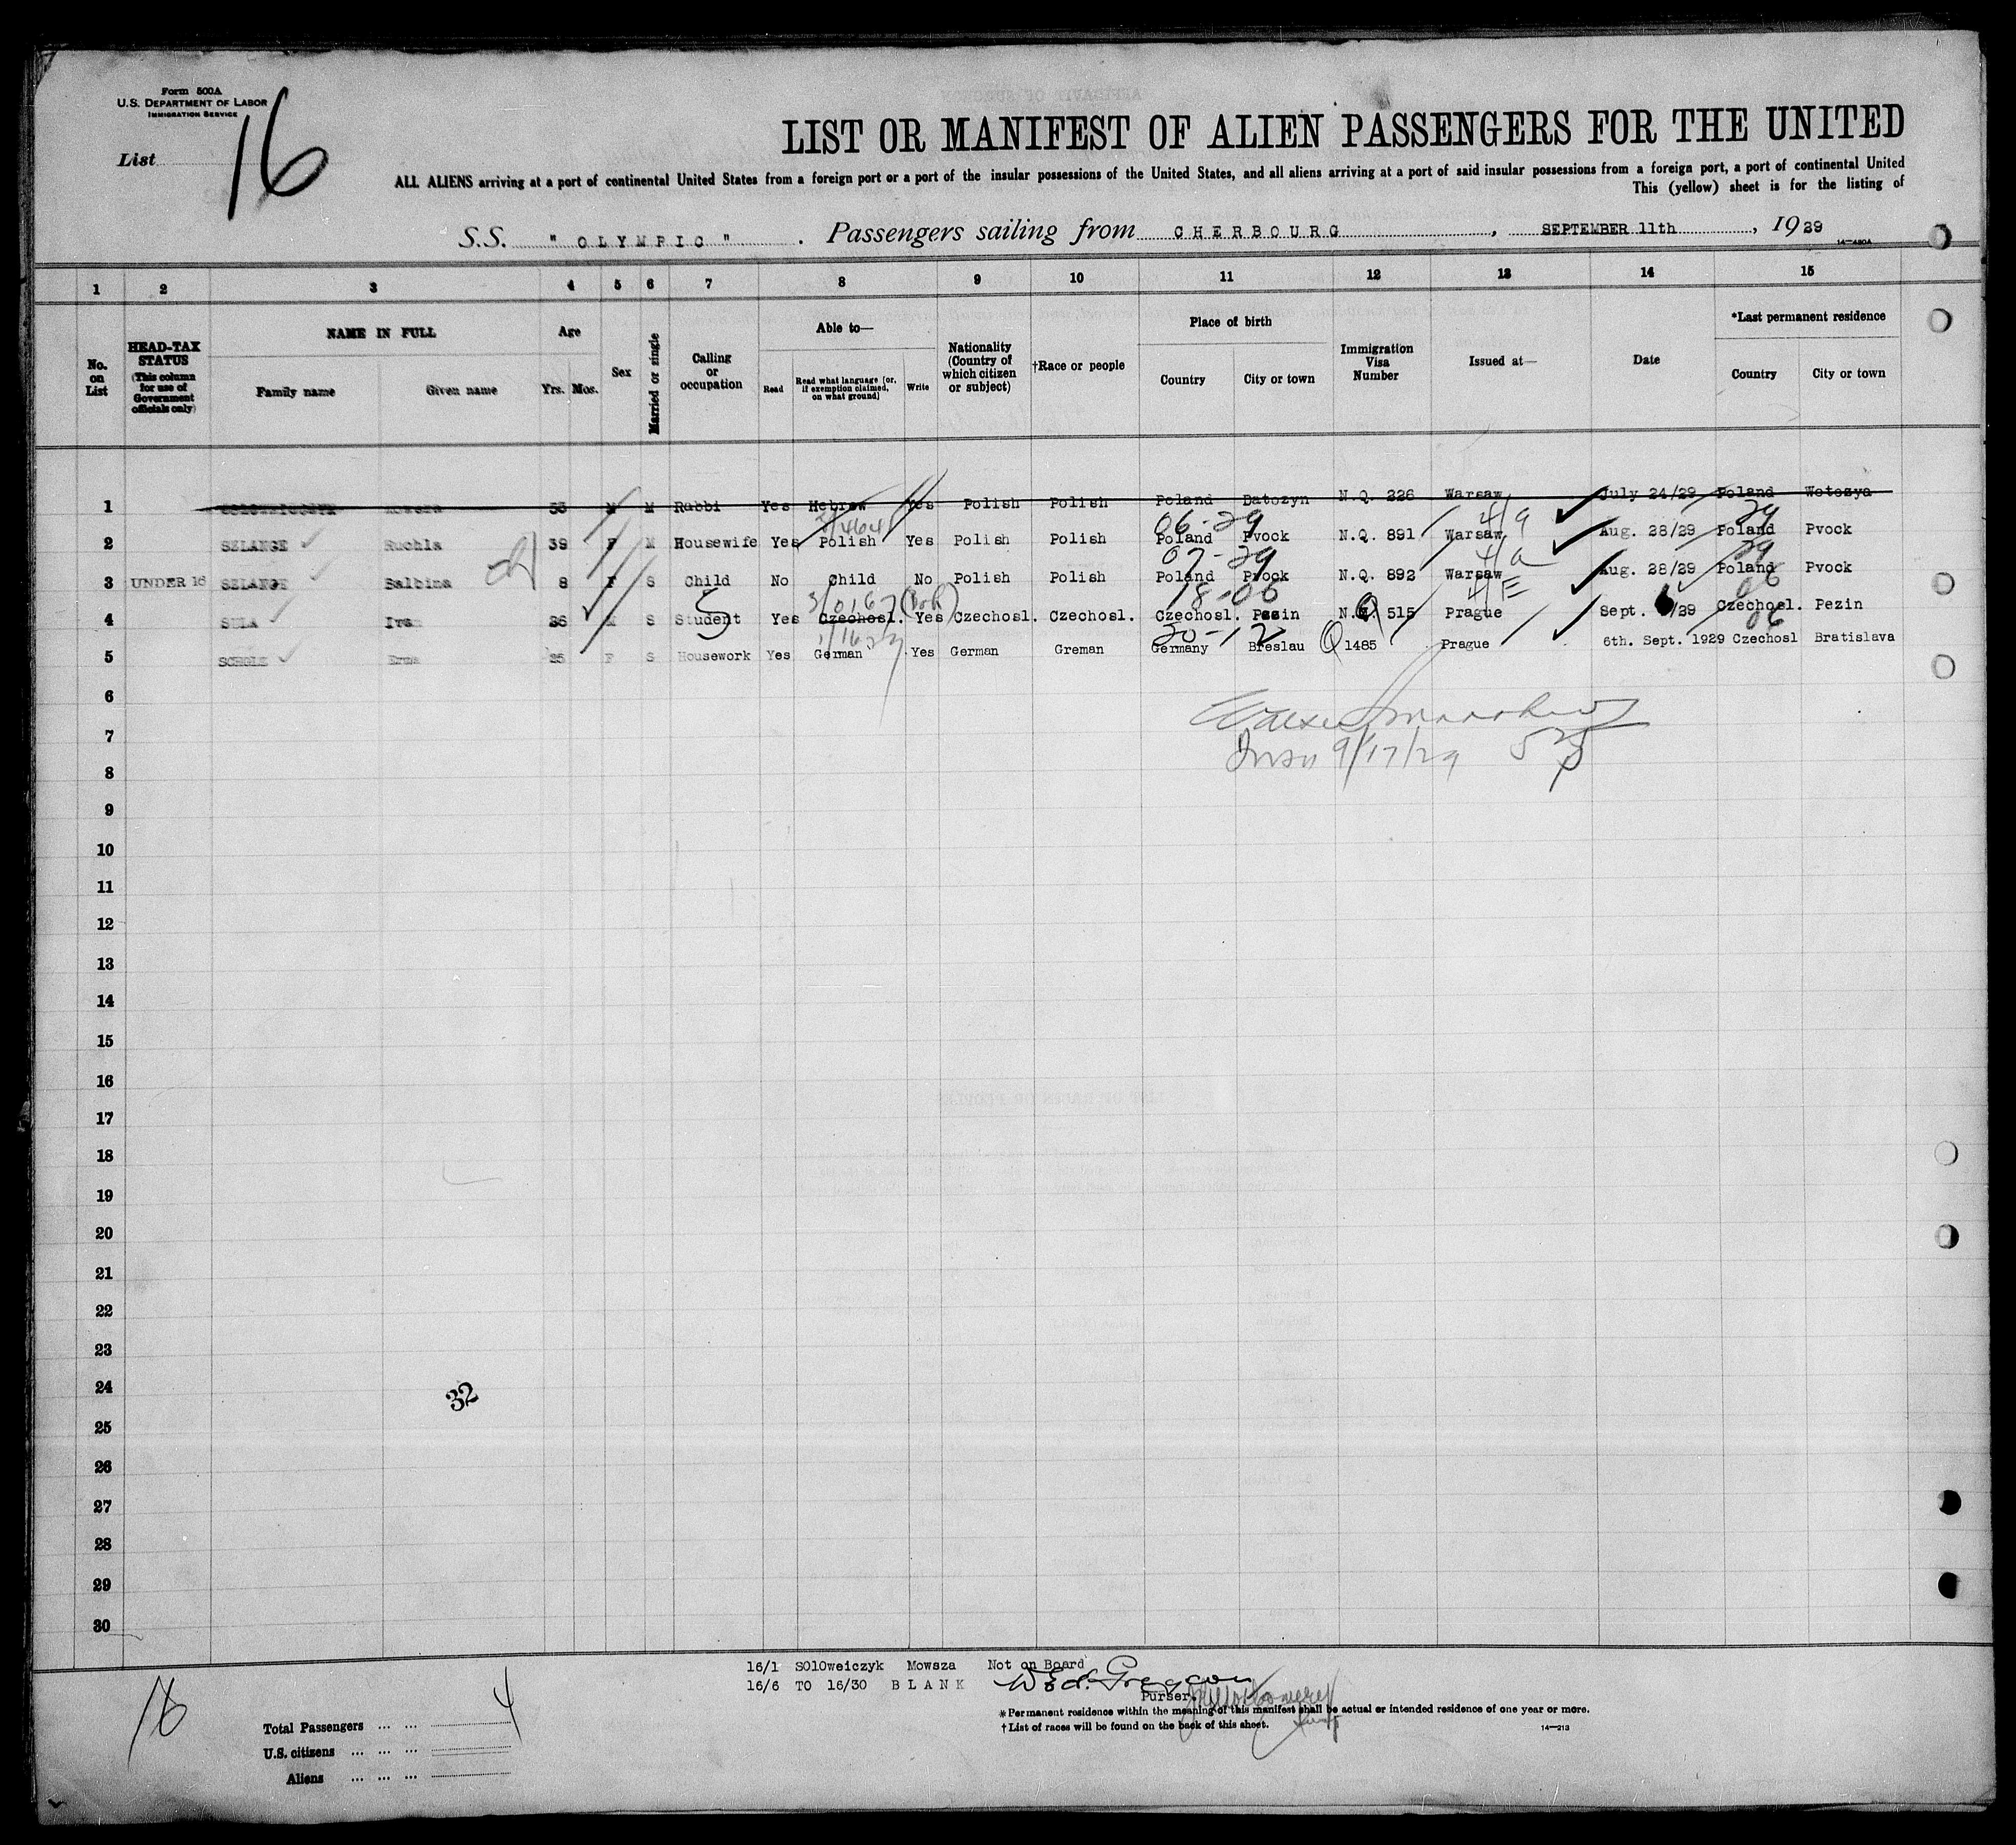 Form 500A
U.S. DEPARTMENT OF LABOR
IMMIGRATION SERVICE
List 16
LIST OR MANIFEST OF ALIEN PASSENGERS FOR THE UNITED
ALL ALIENS arriving at a port of continental United States from a foreign port or a port of the insular possessions of the United States, and all aliens arriving at a port of said insular possessions from a foreign port, a port of continental United
This (yellow) sheet is for the listing of
S.S. " OLYMPIC " . Passengers sailing from CHERBOURG , SEPTEMBER 11th , 1929
14—480A
1 2 3 4 5 6 7 8 9 10 11 12 13 14 15
No. on List
HEAD-TAX STATUS (This column for use of Government officials only)
NAME IN FULL
Family name Given name
Age
Yrs. Mos.
Sex
Married or single
Calling or occupation
Able to—
Read Read what language [or, if exemption claimed, on what ground] Write
Nationality (Country of which citizen or subject)
†Race or people
Place of birth
Country City or town
Immigration Visa Number
Issued at—
Date
*Last permanent residence
Country City or town
1 53 M M Rabbi Yes Hebrew Yes Polish Polish Poland Datozyn N.Q. 226 Warsaw July 24/29 Poland Wotozya
4/464 06-29 4/a 29
2 SZLANGE Ruchla 39 F M Housewife Yes Polish Yes Polish Polish Poland Pvock N.Q. 891 Warsaw Aug. 28/29 Poland Pvock
07-29 4/a 29
3 UNDER 16 SZLANGE Salbina 8 F S Child No Child No Polish Polish Poland Pvock N.Q. 892 Warsaw Aug. 28/29 Poland Pvock
18-06 4/E 06
4 SULA Ivan 26 M S Student Yes Czechosl. Yes Czechosl. Czechosl. Czechosl. Pezin N.Q. 515 Prague Sept. 6/29 Czechosl. Pezin
30-12 06
5 SCHOLZ Erna 25 F S Housework Yes German Yes German Greman Germany Breslau Q 1485 Prague 6th. Sept. 1929 Czechosl Bratislava
6
7
9/17/29
8
9
10
11
12
13
14
15
16
17
18
19
20
21
22
23
24
32
25
26
27
28
29
30
16/1 SOlOweiczyk Mowsza Not on Board
16/6 TO 16/30 BLANK
Purser.
*Permanent residence within the meaning of this manifest shall be actual or intended residence of one year or more.
†List of races will be found on the back of this sheet.
14—213
16
Total Passengers ... ... 4
U.S. citizens ... ... ...
Aliens ... ... ...